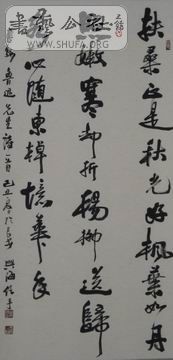 扶桑正是秋光好枫叶如丹
照嫩寒却折杨柳送归
客心随东棹忆华年
鲁迅先生诗一首己丑
書法 WWW.SHUFA.ORG